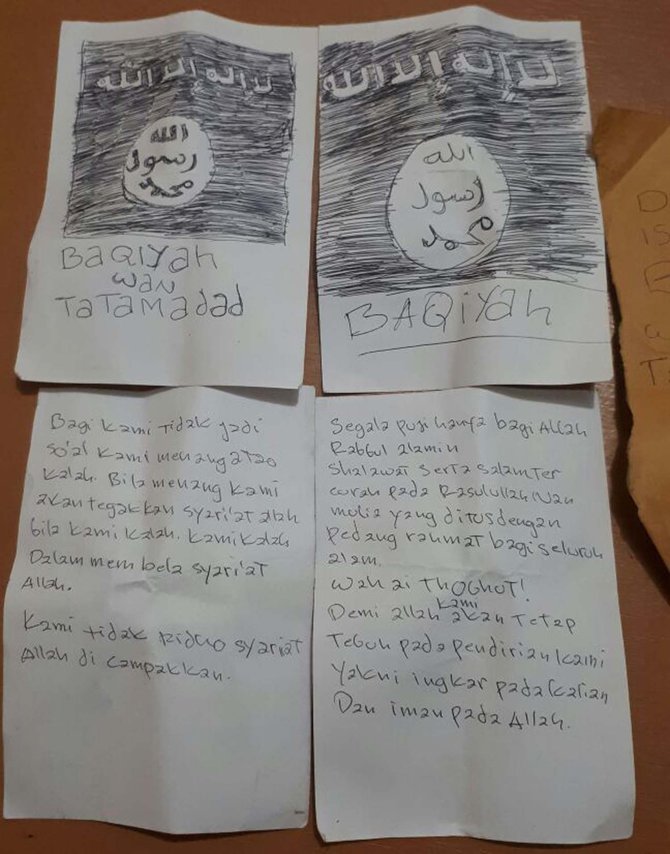 لا إله إلا الله
الله
رسول
محمد
BAQIYAH
WAN
TATAMADAD
لا إله إلا الله
الله
رسول
محمد
BAQiYAH
Bagi kami tidak jadi
so'al kami menang atao
kalah. Bila menang kami
akan tegakkan syari'at allah
bila kami kalah. kami kalah
Dalam mem bela syari'at
Allah.
Kami tidak Ridho syariat
Allah di campakkan.
Segala puji hanya bagi Allah
Rabbul alamin
Shalawat serta salam ter
curah pada Rasulullah Nan
mulia yang ditus dengan
pedang rahmat bagi seluruh
alam.
Wah ai Thoghut!
Demi allah kami akan Tetap
Teguh pada pendirian kami
Yakni ingkar pada kalian
Dan iman pada Allah.